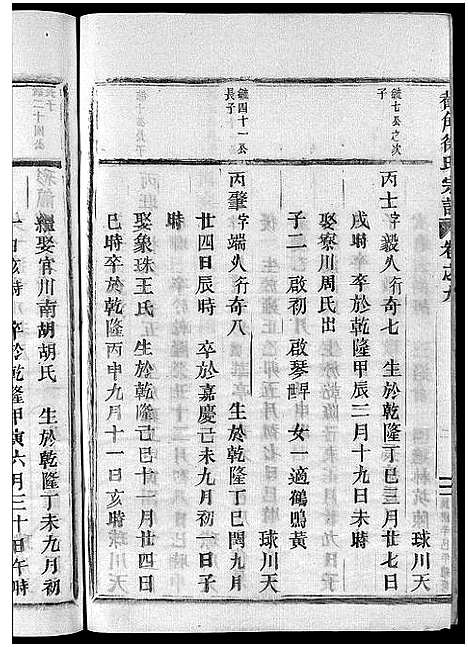 徐氏宗譜 卷之九
鏡七公之次
子
丙士字毅夫行奇七 生於乾隆丁巳三月廿四日
戌時 卒於乾隆甲辰三月十九日未時 球川天
娶寮川周氏出
子二 啟初月 啟琴畔 女一適鶴鳴黃
鏡四十一公
長子
丙肇字端夫行奇八 生於乾隆丁巳閏九月
廿四日辰時 卒於嘉慶己未九月初一日子
時 球川天
娶象珠王氏 生於乾隆己巳十一月廿四日
巳時卒於乾隆丙申九月十一日亥時
繼娶官川南胡胡氏 生於乾隆丁未九月初
日亥時 卒於乾隆甲寅六月三十日午時